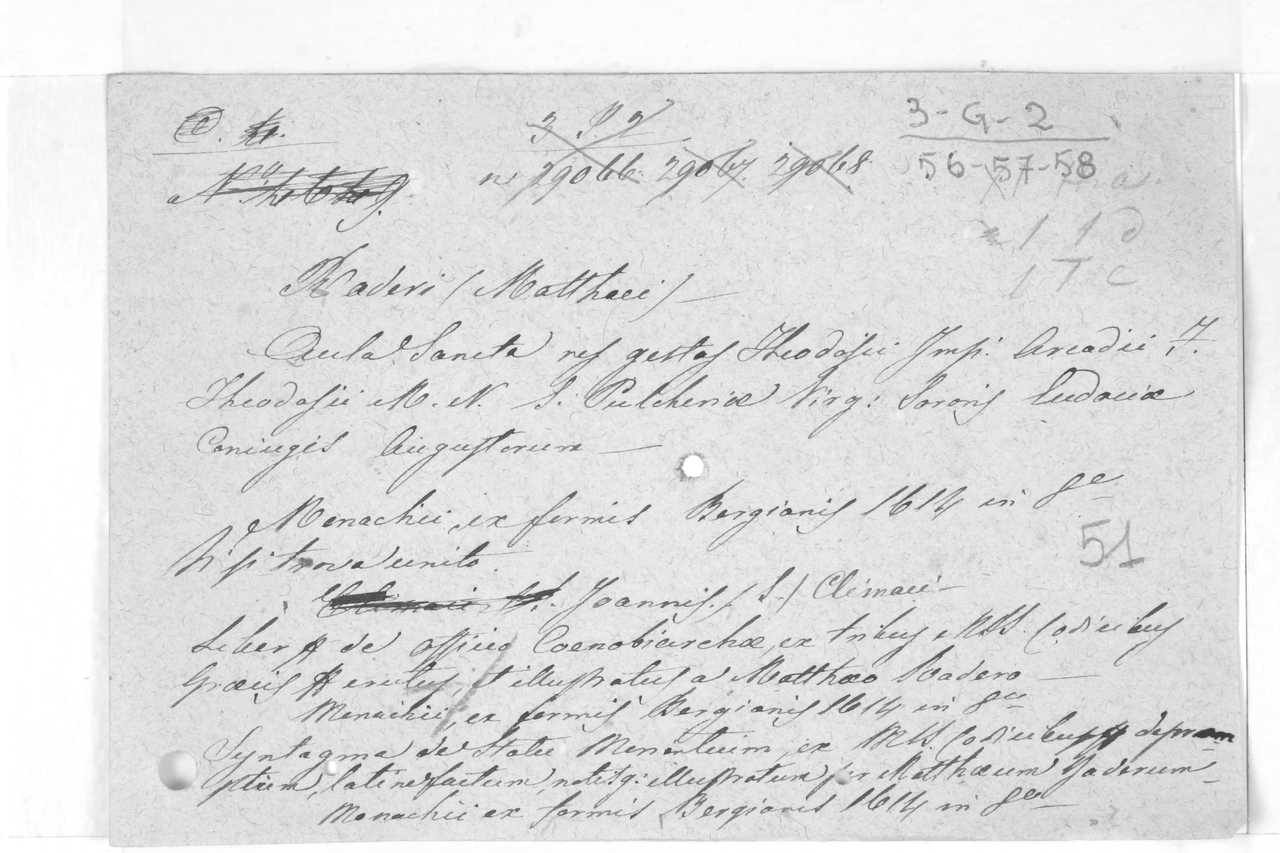 3-G-2
n. 29066. 29067. 29068
56-57-58
1 1 d
1 T C
Raderi (Matthaei) —
Aula Sancta res gestas Theodosii Imp: Arcadii,
Theodosii M. N. S. Pulcheriæ Virg: Sororis Eudociæ
Coniugis Augustorum —
Monachii, ex formis Bergianis 1614 in 8°
51
Vi si trova unito
Joannis. (S.) Climaci —
Liber de officio Coenobiarchæ, ex tribus MSS. Codicibus
Græcis erutus, et illustratus a Matthæo Radero —
Monachii, ex formis Bergianis 1614 in 8°
Syntagma de Statu Morientium, ex MSS. Codicibus deprom
ptum, latine factum, notisq: illustratum per Matthæum Raderum —
Monachii ex formis Bergianis 1614 in 8°